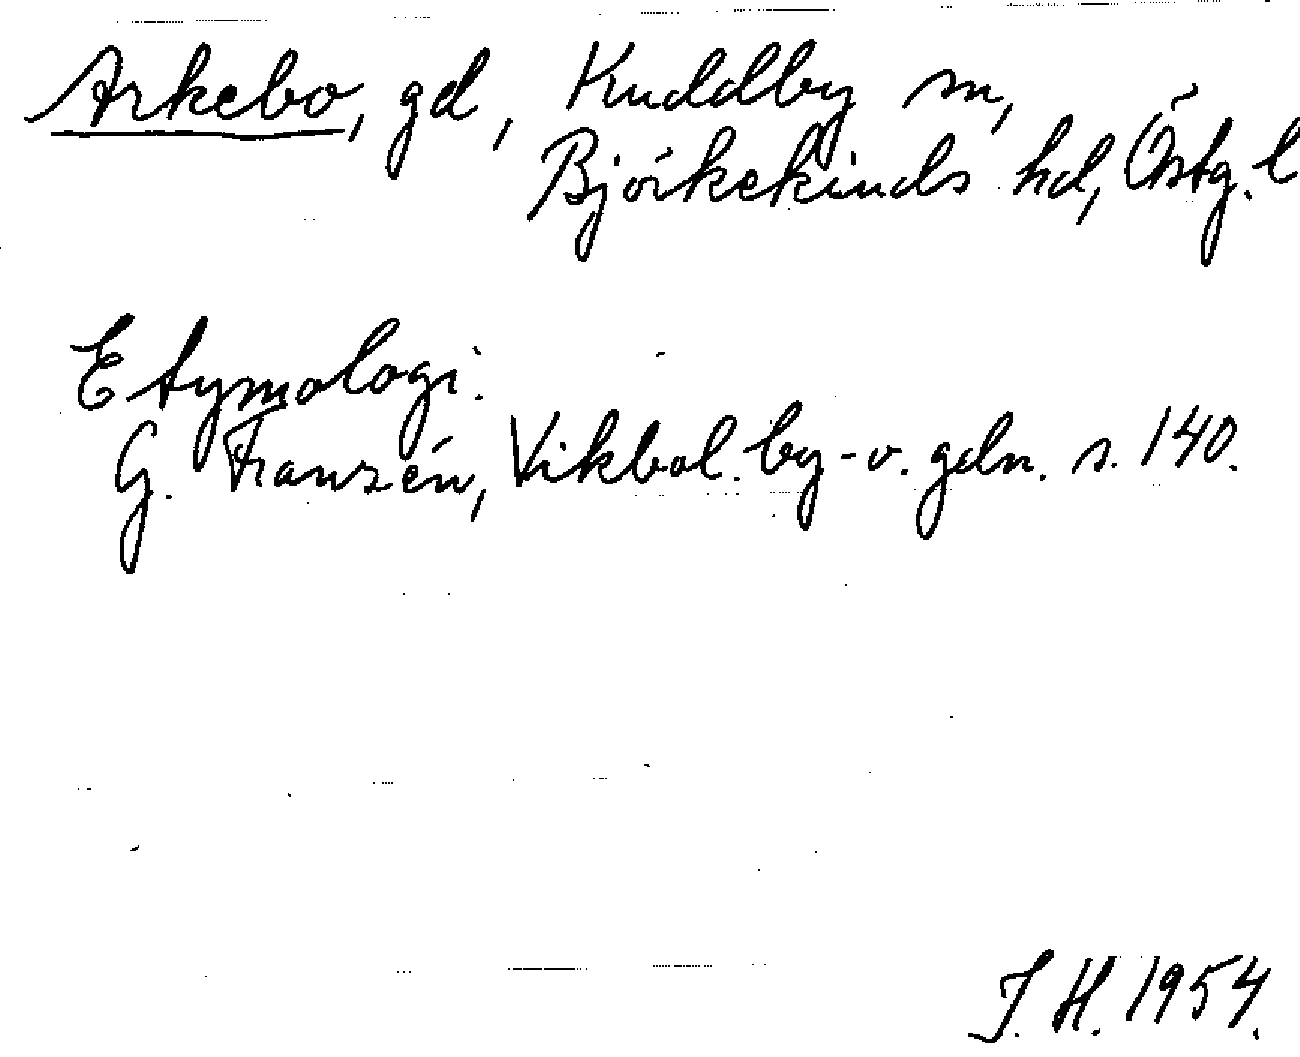 Arkebo, gd, Kuddby sn,
Björkekinds hd, Östg. l
Etymologi:
G. Franzén, Vikbol. by- o. gdn. s. 140.
J. H. 1954.